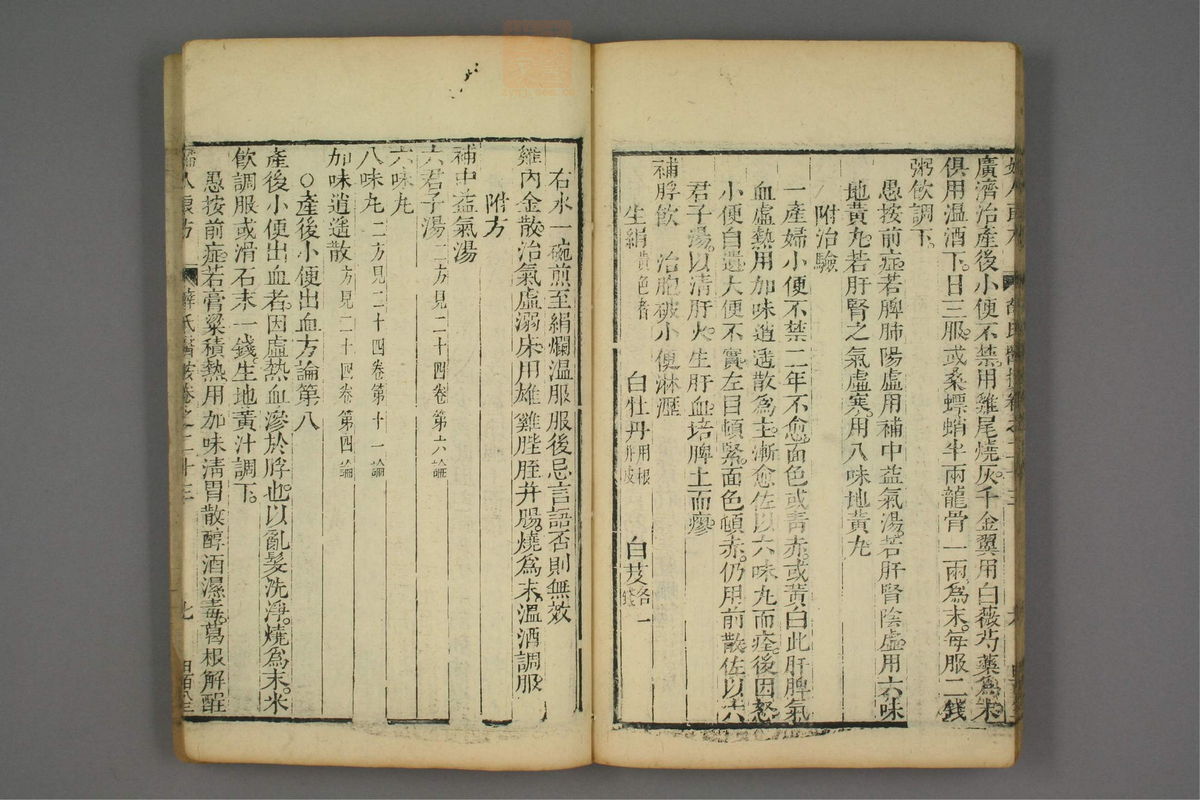 廣濟治產後小便不禁。用雞尾燒灰。千金翼用白薇芍藥爲末。
俱用溫酒下。日三服。或桑螵蛸半兩龍骨一兩爲末。每服二錢
粥飲調下。
愚按前症若脾肺陽虛。用補中益氣湯。若肝腎陰虛。用六味
地黃丸。若肝腎之氣虛寒。用八味地黃丸
附治驗
一產婦小便不禁二年不愈。面色或青赤。或黃白此肝脾氣
血虛熱用加味逍遙散爲主。漸愈佐以六味丸而痊。後因怒
小便自遺大便不實左目頓緊。面色頓赤。仍用前散。佐以六
君子湯。以清肝火。生肝血。培脾土而瘳
補脬飲 治胞破小便淋瀝
生絹黃色者 白牡丹用根并皮 白芨各一錢
右水一碗煎至絹爛溫服服後忌言語否則無效
雞內金散。治氣虛溺床。用雄雞肫胵并腸。燒爲末。溫酒調服
附方
補中益氣湯
六君子湯二方見二十四卷第六論
六味丸
八味丸二方見二十四卷第十一論
加味逍遙散方見二十四卷第四論
○產後小便出血方論第八
產後小便出血者。因虛熱血滲於脬也。以亂髮洗淨。燒爲末。米
飲調服或滑石末一錢生地黃汁調下。
愚按前症。若膏粱積熱用加味清胃散醇酒濕毒。葛根解酲
薛氏醫按卷之二十三